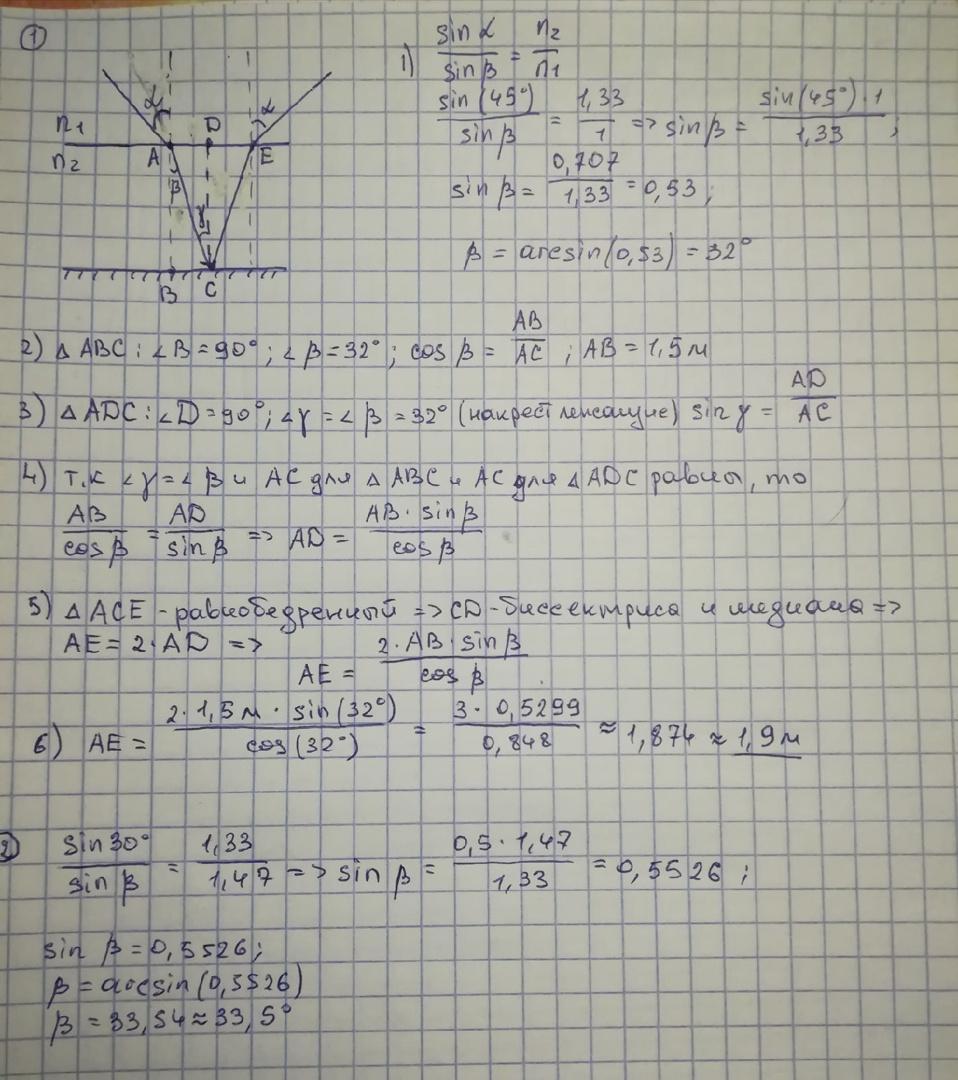 1
1) sin α / sin β = n2 / n1
sin(45°) / sin β = 1,33 / 1 => sin β = sin(45°)·1 / 1,33 ;
sin β = 0,707 / 1,33 = 0,53 ;
β = arcsin(0,53) = 32°
α
α
n1
D
n2
A
E
β
γ
B
C
2) △ ABC : ∠B = 90° ; ∠β = 32° ; cos β = AB / AC ; AB = 1,5 м
3) △ ADC : ∠D = 90° ; ∠γ = ∠β = 32° (накрест лежащие) sin γ = AD / AC
4) т.к ∠γ = ∠β и AC для △ ABC и AC для △ ADC равны, то
AB / cos β = AD / sin β => AD = AB · sin β / cos β
5) △ ACE - равнобедренный => CD - биссектриса и медиана =>
AE = 2·AD => AE = 2·AB·sin β / cos β
6) AE = 2·1,5 м · sin(32°) / cos(32°) = 3·0,5299 / 0,848 ≈ 1,874 ≈ 1,9 м
2 sin 30° / sin β = 1,33 / 1,47 => sin β = 0,5·1,47 / 1,33 = 0,5526 ;
sin β = 0,5526 ;
β = arcsin(0,5526)
β = 33,54 ≈ 33,5°